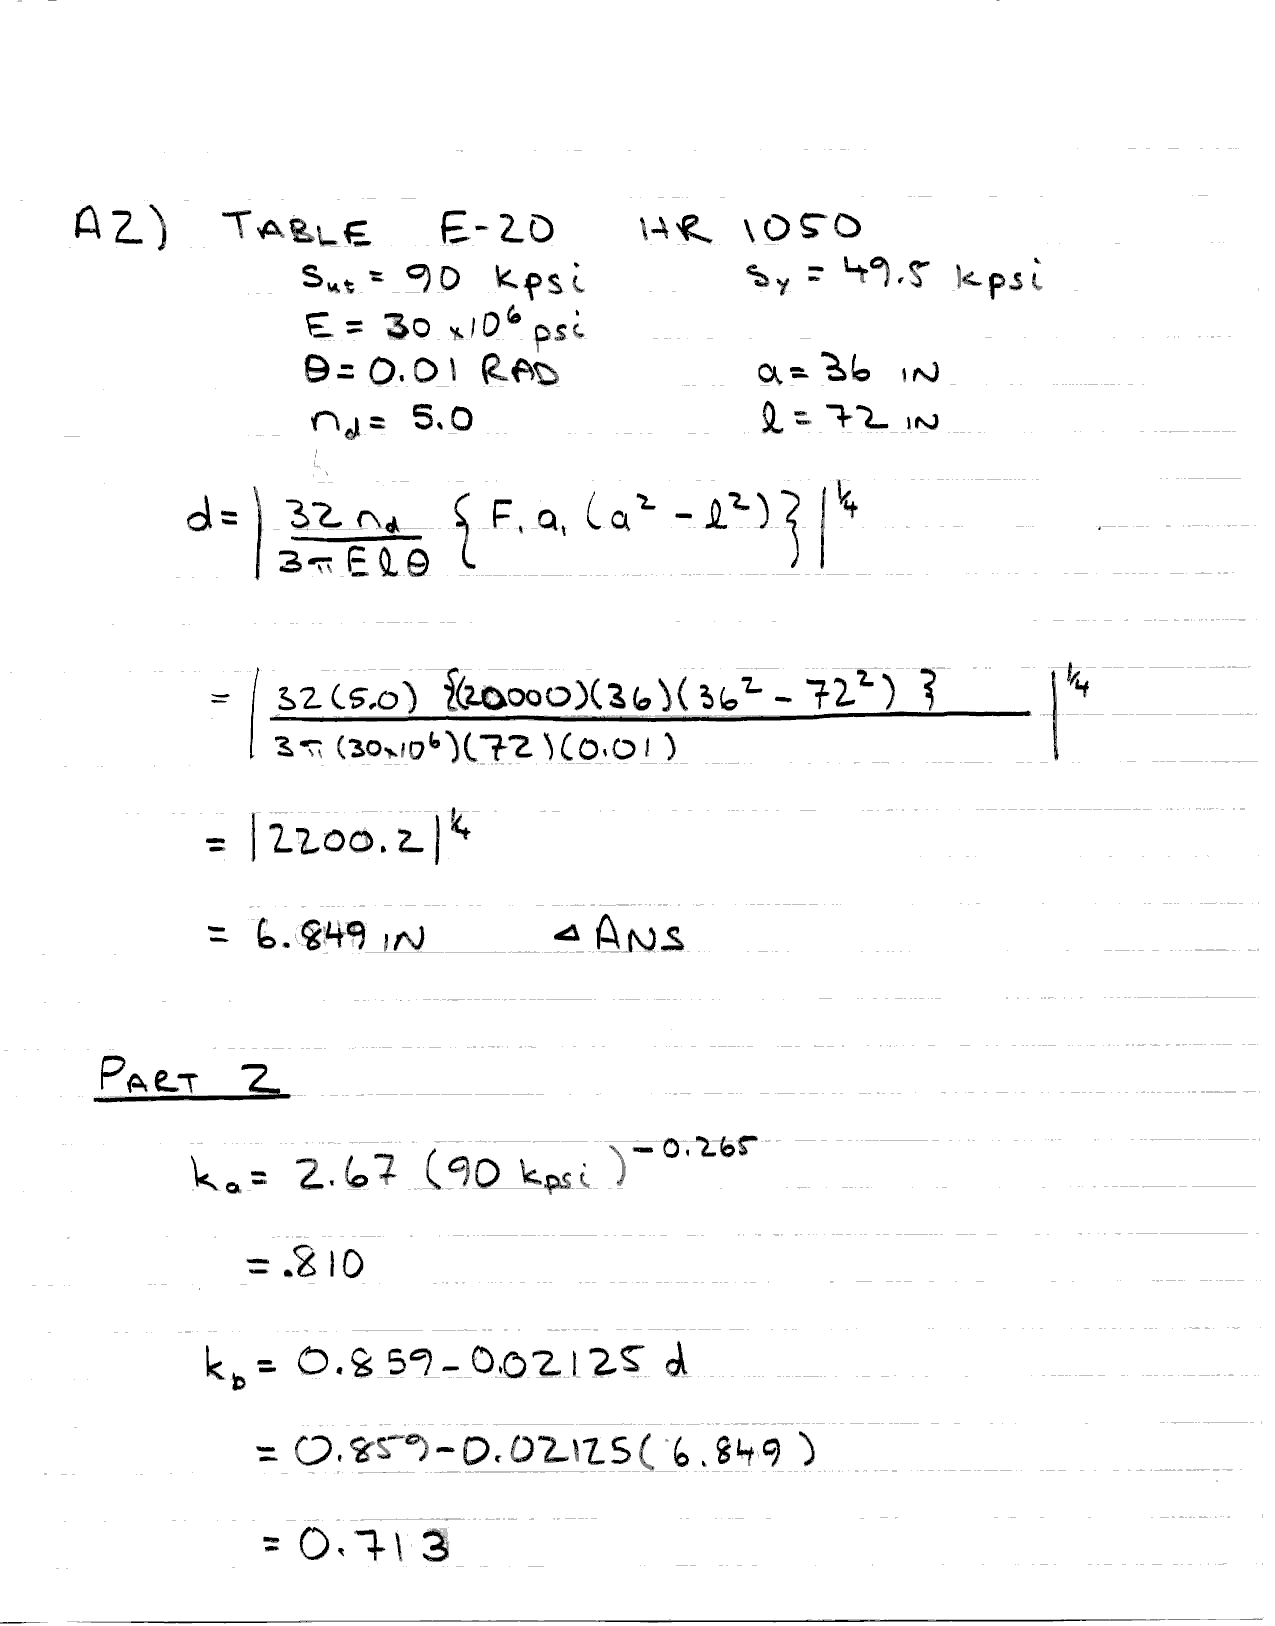 A2) TABLE E-20 HR 1050
Sut = 90 kpsi Sy = 49.5 kpsi
E = 30 x10^6 psi
θ = 0.01 RAD a = 36 IN
nd = 5.0 l = 72 IN
d = | 32 nd / 3π E l θ { F, a, (a² - l²) } |^1/4
= | 32 (5.0) {(20000)(36)(36² - 72²) } / 3π (30x10^6)(72)(0.01) |^1/4
= | 2200.2 |^1/4
= 6.849 IN ◁ ANS
PART 2
ka = 2.67 (90 kpsi)^-0.265
= .810
kb = 0.859 - 0.02125 d
= 0.859 - 0.02125 (6.849)
= 0.713